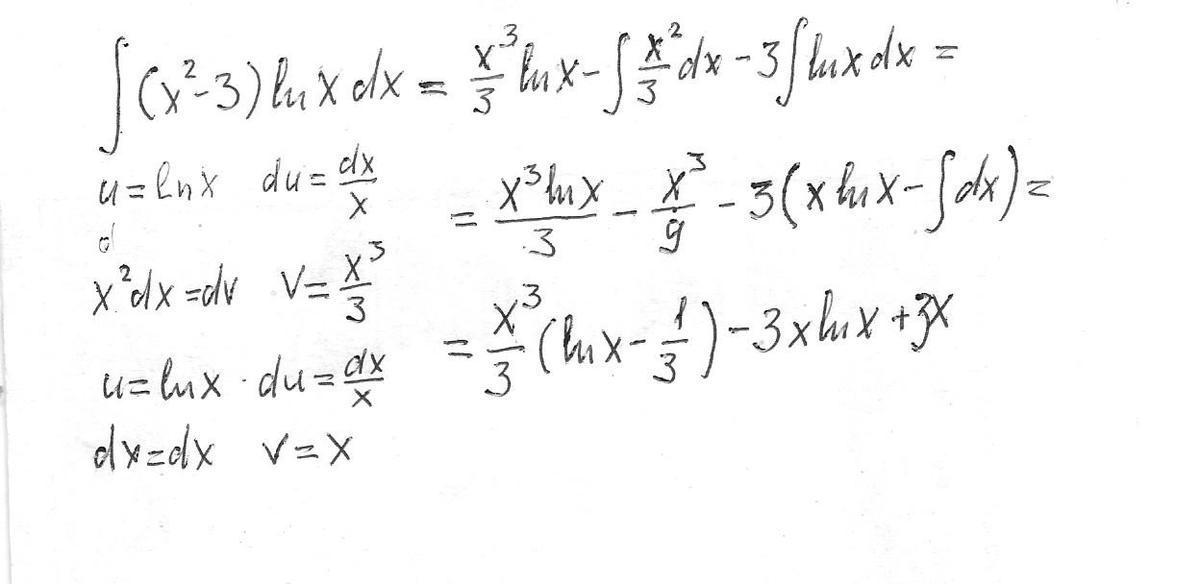 ∫(x²-3) ln x dx = x³/3 ln x - ∫ x²/3 dx - 3∫ ln x dx =
u = ln x du = dx/x
= x³ ln x/3 - x³/9 - 3(x ln x - ∫dx) =
d
x²dx = dv v = x³/3
= x³/3 (ln x - 1/3) - 3x ln x + 3x
u = ln x · du = dx/x
dx = dx v = x